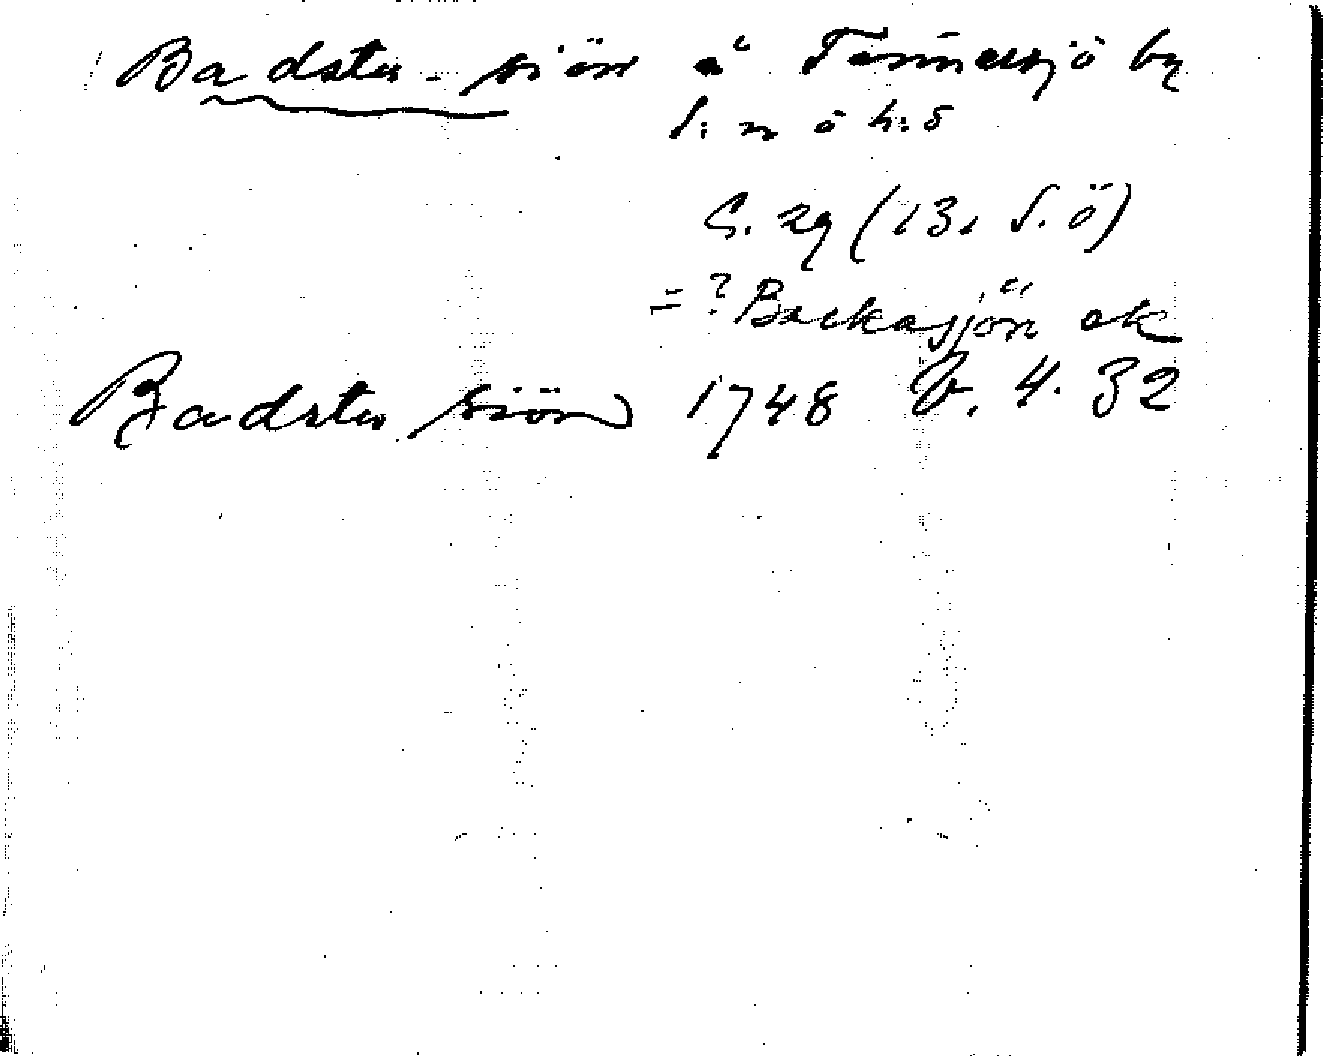 Badstu-siön å Tännersjö by
S. 29 (131 S. ö)
= ? Backasjön ek
Badstu siön 1748 4. 32